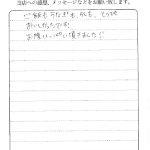 当店への感想、メッセージなどをお願い致します。
ご飯もうなぎも、肝も、とっても
おいしかったです。
お腹いっぱい頂きました!